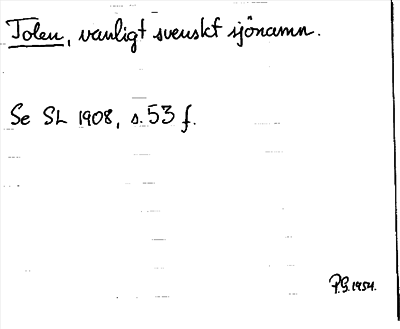 Tolen, vanligt svenskt sjönamn.
Se SL 1908, s. 53 f.
P.G. 1954.